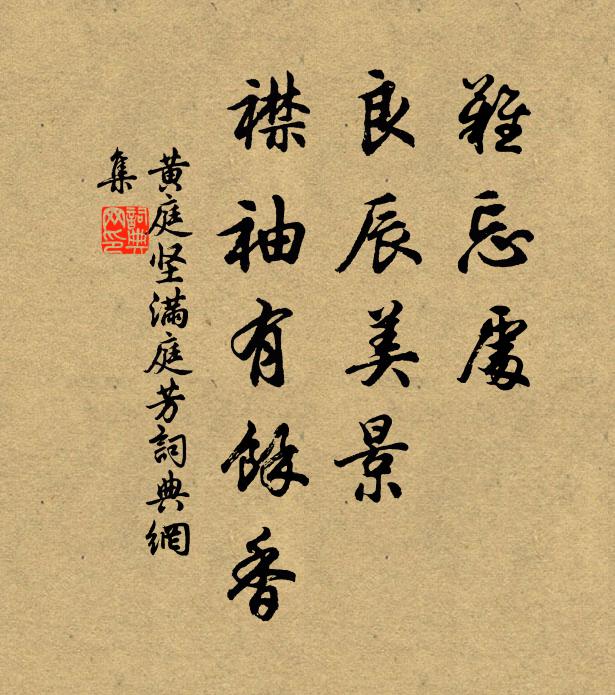 難忘處
良辰美景
襟袖有餘香
黄庭坚滿庭芳詞典網
集
詞典
网印